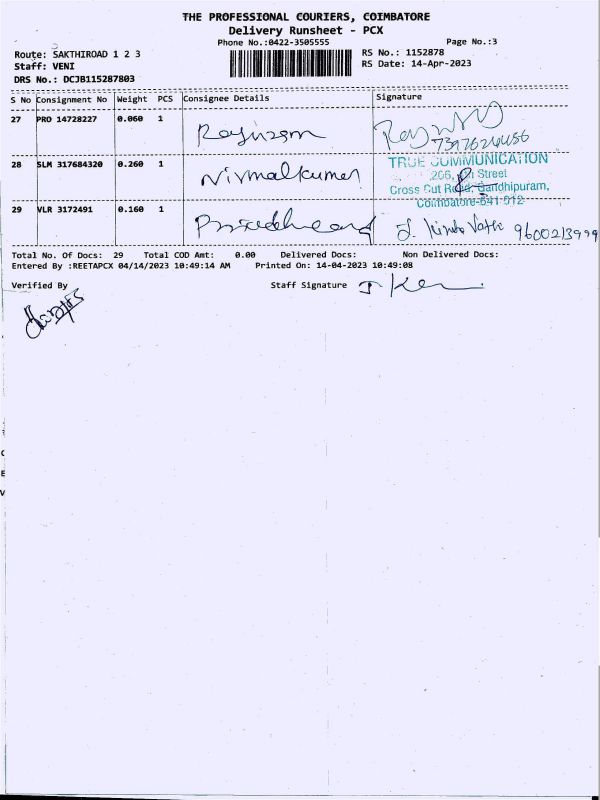 THE PROFESSIONAL COURIERS, COIMBATORE
Delivery Runsheet - PCX
Phone No.:0422-3505555 Page No.:3
Route: SAKTHIROAD 1 2 3 RS No.: 1152878
Staff: VENI RS Date: 14-Apr-2023
DRS No.: DCJB115287803
S No Consignment No Weight PCS Consignee Details Signature
27 PRO 14728227 0.060 1
28 SLM 317684320 0.260 1 Nirmalkumar
TRUE COMMUNICATION
206, Street
Cross Cut Road, Gandhipuram,
Coimbatore-641 012
29 VLR 3172491 0.160 1 9600213999
Total No. Of Docs: 29 Total COD Amt: 0.00 Delivered Docs: Non Delivered Docs:
Entered By :REETAPCX 04/14/2023 10:49:14 AM Printed On: 14-04-2023 10:49:08
Verified By Staff Signature